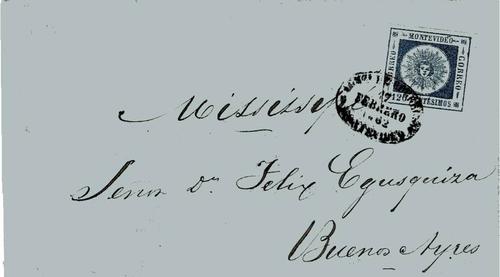 MONTEVIDEO
CORREO
CORREO
120 CENTÉSIMOS
FEBRERO
MONTEVIDEO
Mississipi
Señor Dn. Felix Egusquiza
Buenos Ayres